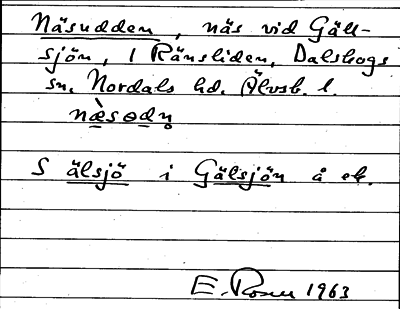 Näsudden, näs vid Gäll-
sjön, 1 Ränsliden, Dalskogs
sn. Nordals hd. Älvsb. l.
næ̀sødn̥
S älsjö i Gälsjön å ek.
E. Rosen 1963